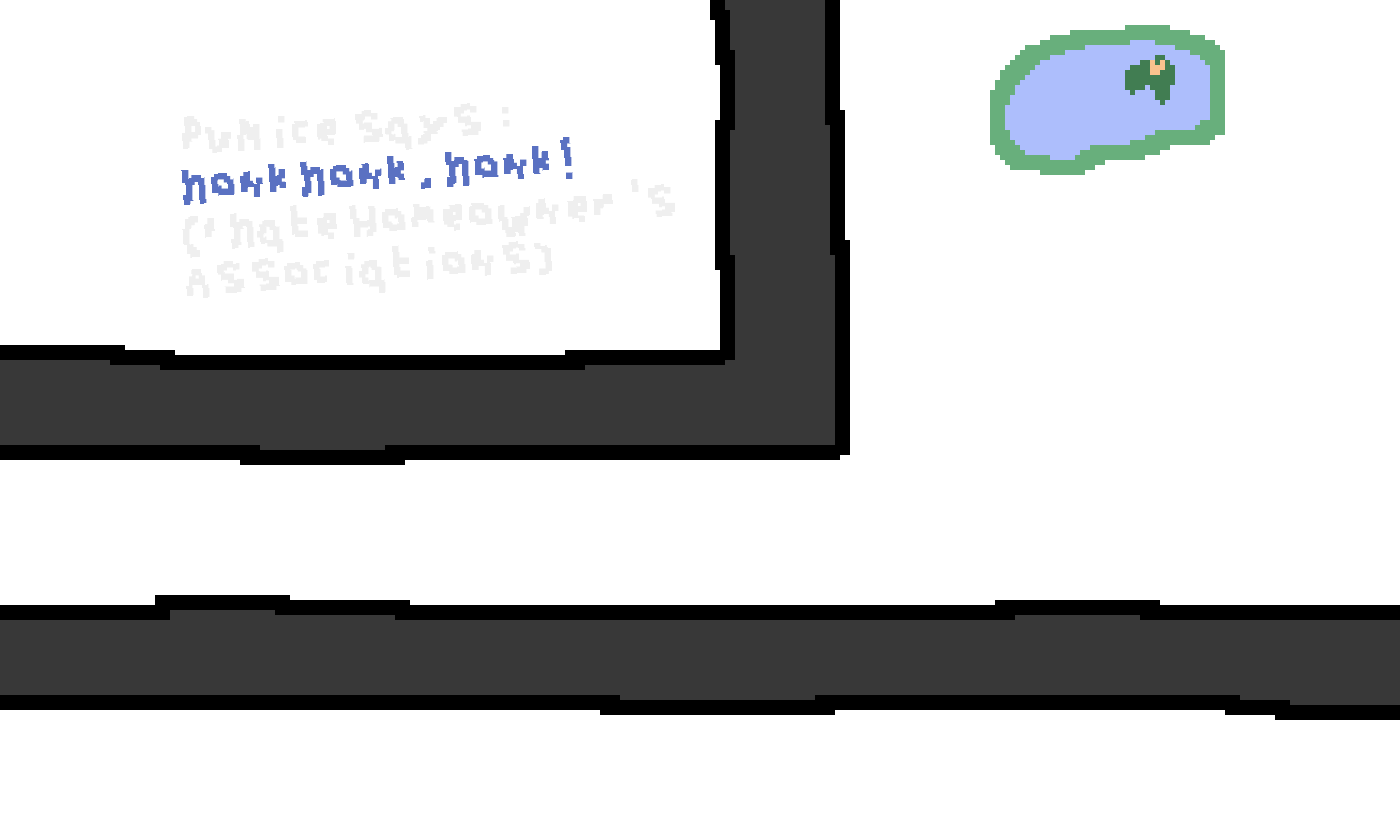 Pumice says:
honk honk. honk!
(i hate Homeowner's
Associations)